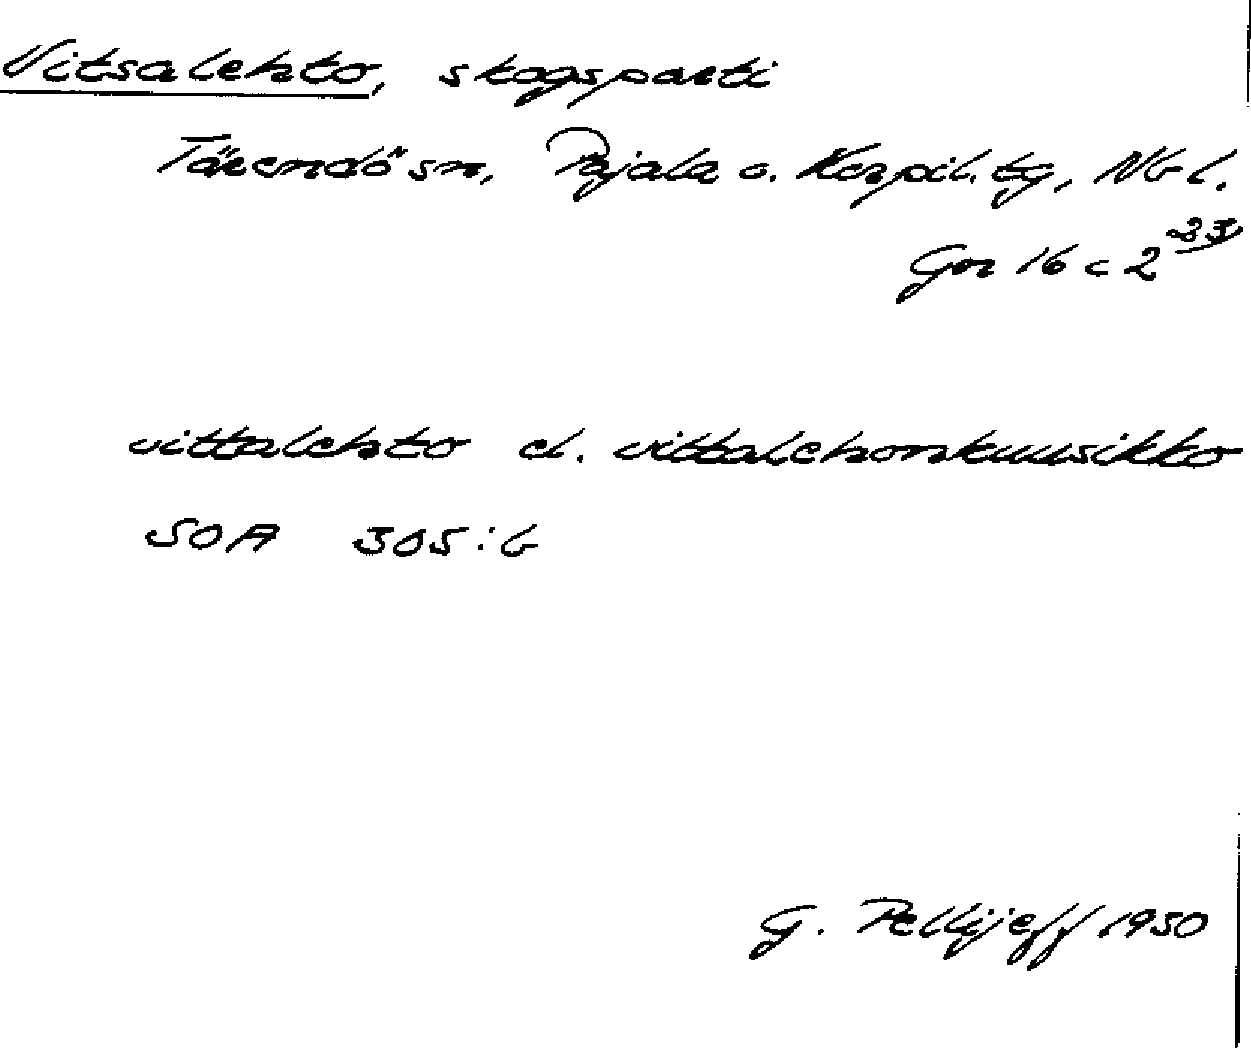 Vitsalehto, skogsparti
Tärendö sn, Pajala o. Korpil. tg, Nb l.
Gor 16 c 2 23
vittalehto el. vittalehonkuusikko
SOA 305:6
G. Pellijeff 1950